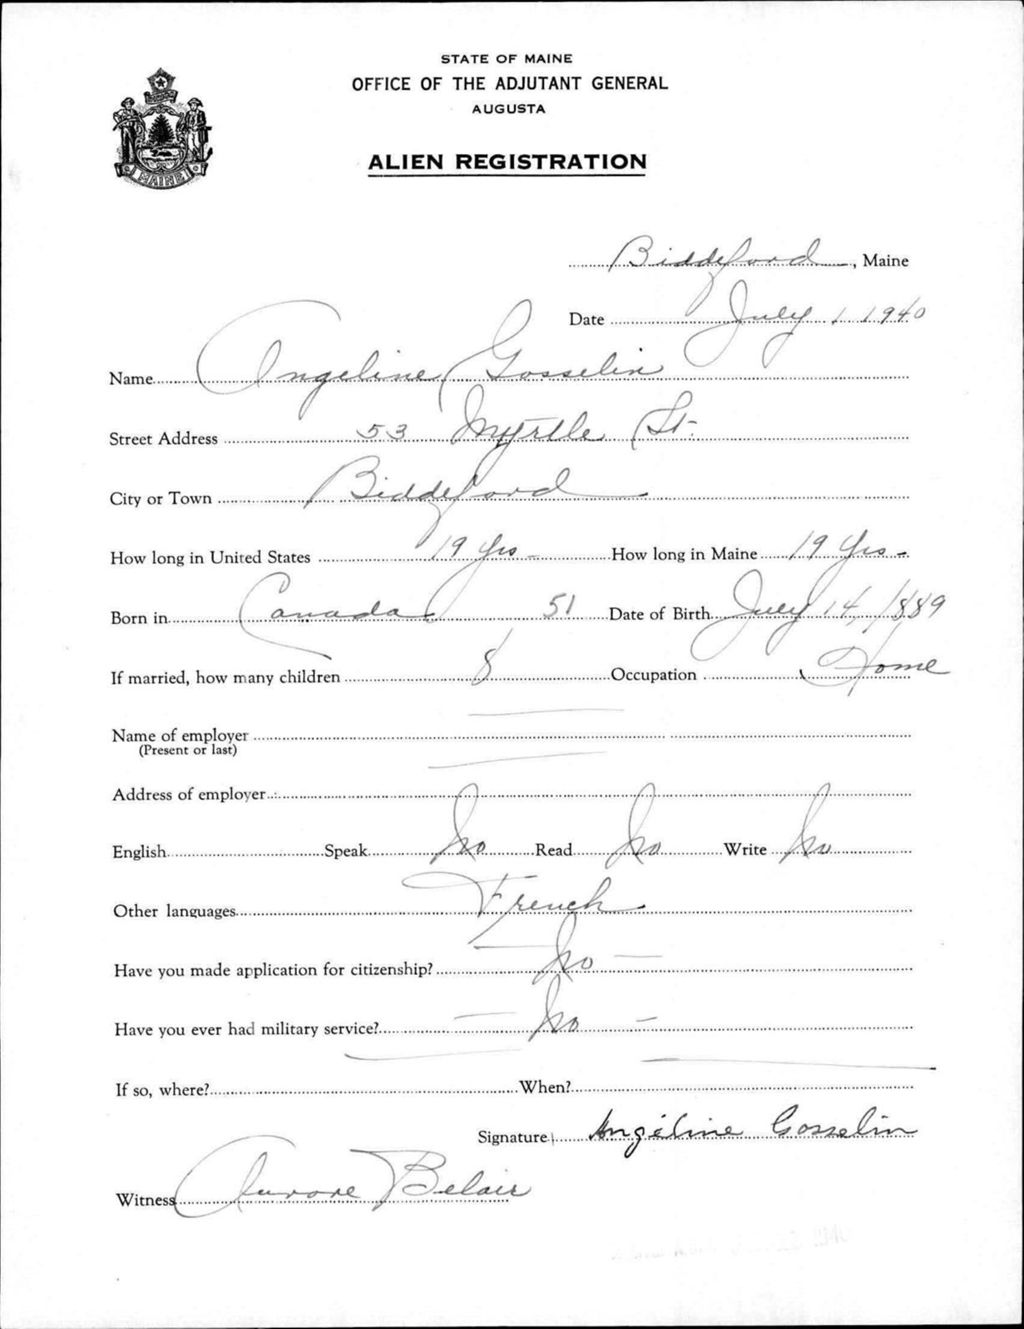 STATE OF MAINE
OFFICE OF THE ADJUTANT GENERAL
AUGUSTA
ALIEN REGISTRATION
MAINE
Biddeford, Maine
Date July 1 1940
Name Angeline Gosselin
Street Address 53 Myrtle St.
City or Town Biddeford
How long in United States 19 yrs How long in Maine 19 yrs
Born in Canada 51 Date of Birth July 14, 1889
If married, how many children 8 Occupation Home
Name of employer
(Present or last)
Address of employer
English Speak No Read No Write No
Other languages French
Have you made application for citizenship? No
Have you ever had military service? No
If so, where? When?
Signature Angéline Gosselin
Witness Aurore Belair